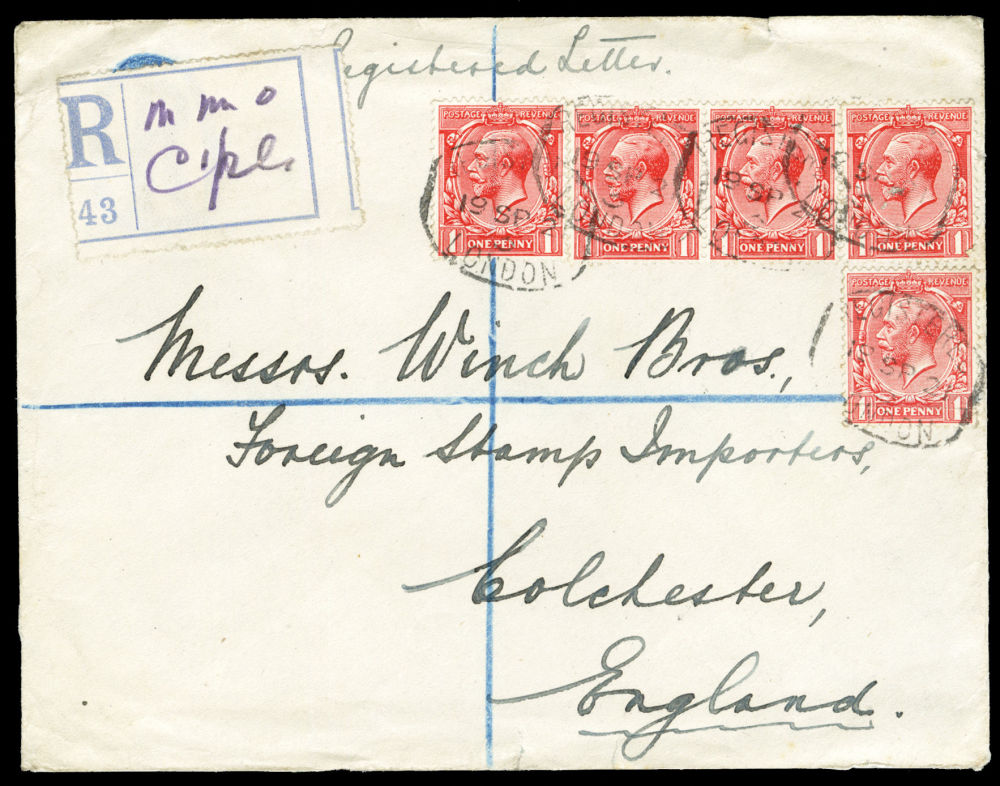 Registered Letter.
R
m m o
43
POSTAGE REVENUE
ONE PENNY
1 1
POSTAGE REVENUE
ONE PENNY
1 1
POSTAGE REVENUE
ONE PENNY
1 1
POSTAGE REVENUE
ONE PENNY
1 1
19 SP
LONDON
REGISTERED
19 SP
LONDON
Messrs. Winch Bros.,
POSTAGE REVENUE
ONE PENNY
1 1
REGISTERED
19 SP 2
LONDON
Foreign Stamp Importers,
Colchester,
England.